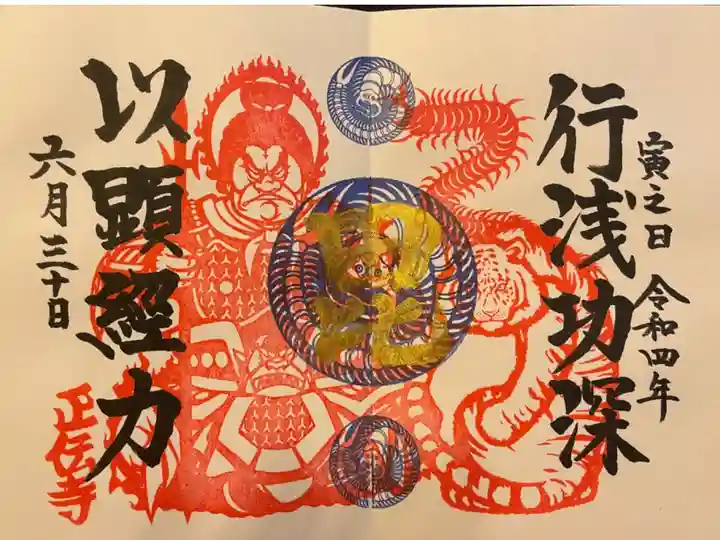 寅之日 令和四年
行浅功深
以顕経力
六月三十日
正伝寺